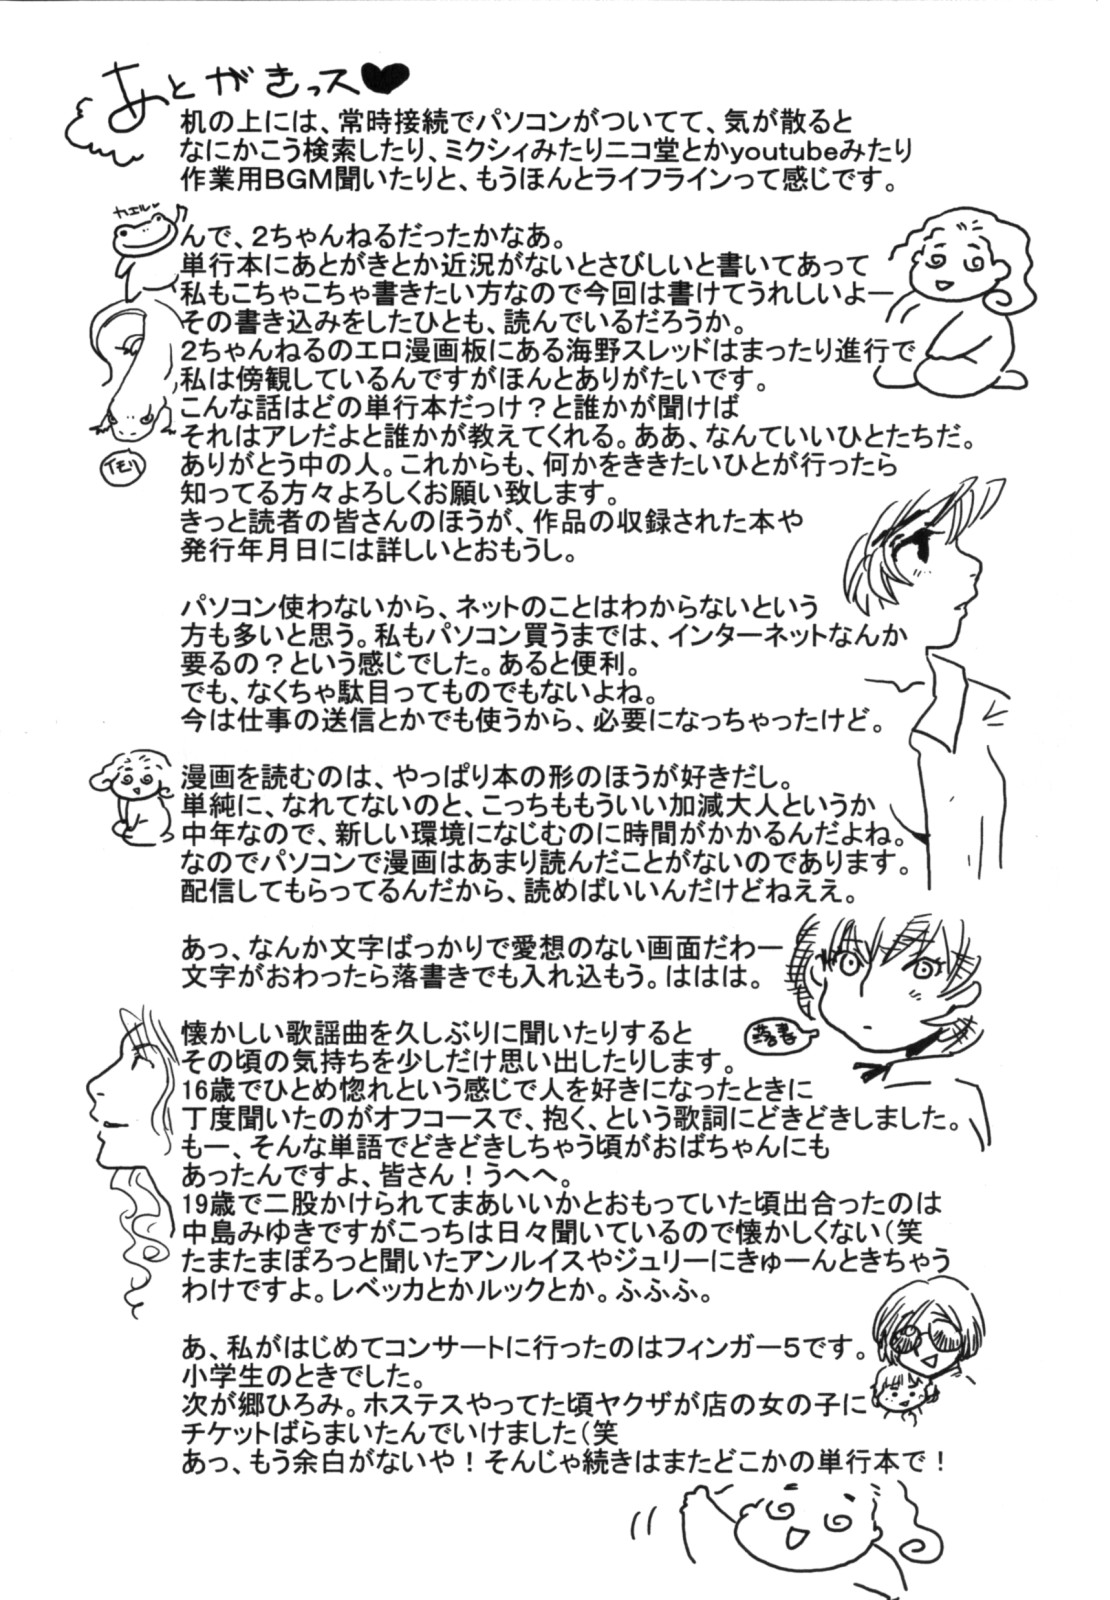 あとがきっス♥
机の上には、常時接続でパソコンがついてて、気が散ると
なにかこう検索したり、ミクシィみたりニコ堂とかyoutubeみたり
作業用BGM聞いたりと、もうほんとライフラインって感じです。
カエル
んで、2ちゃんねるだったかなあ。
単行本にあとがきとか近況がないとさびしいと書いてあって
私もこちゃこちゃ書きたい方なので今回は書けてうれしいよー
その書き込みをしたひとも、読んでいるだろうか。
2ちゃんねるのエロ漫画板にある海野スレッドはまったり進行で
私は傍観しているんですがほんとありがたいです。
こんな話はどの単行本だっけ?と誰かが聞けば
それはアレだよと誰かが教えてくれる。ああ、なんていいひとたちだ。
イモリ
ありがとう中の人。これからも、何かをききたいひとが行ったら
知ってる方々よろしくお願い致します。
きっと読者の皆さんのほうが、作品の収録された本や
発行年月日には詳しいとおもうし。
パソコン使わないから、ネットのことはわからないという
方も多いと思う。私もパソコン買うまでは、インターネットなんか
要るの?という感じでした。あると便利。
でも、なくちゃ駄目ってものでもないよね。
今は仕事の送信とかでも使うから、必要になっちゃったけど。
漫画を読むのは、やっぱり本の形のほうが好きだし。
単純に、なれてないのと、こっちももういい加減大人というか
中年なので、新しい環境になじむのに時間がかかるんだよね。
なのでパソコンで漫画はあまり読んだことがないのであります。
配信してもらってるんだから、読めばいいんだけどねええ。
あっ、なんか文字ばっかりで愛想のない画面だわー
文字がおわったら落書きでも入れ込もう。ははは。
落書
懐かしい歌謡曲を久しぶりに聞いたりすると
その頃の気持ちを少しだけ思い出したりします。
16歳でひとめ惚れという感じで人を好きになったときに
丁度聞いたのがオフコースで、抱く、という歌詞にどきどきしました。
もー、そんな単語でどきどきしちゃう頃がおばちゃんにも
あったんですよ、皆さん!うへへ。
19歳で二股かけられてまあいいかとおもっていた頃出合ったのは
中島みゆきですがこっちは日々聞いているので懐かしくない(笑
たまたまぽろっと聞いたアンルイスやジュリーにきゅーんときちゃう
わけですよ。レベッカとかルックとか。ふふふ。
あ、私がはじめてコンサートに行ったのはフィンガー5です。
小学生のときでした。
次が郷ひろみ。ホステスやってた頃ヤクザが店の女の子に
チケットばらまいたんでいけました(笑
あっ、もう余白がないや!そんじゃ続きはまたどこかの単行本で!